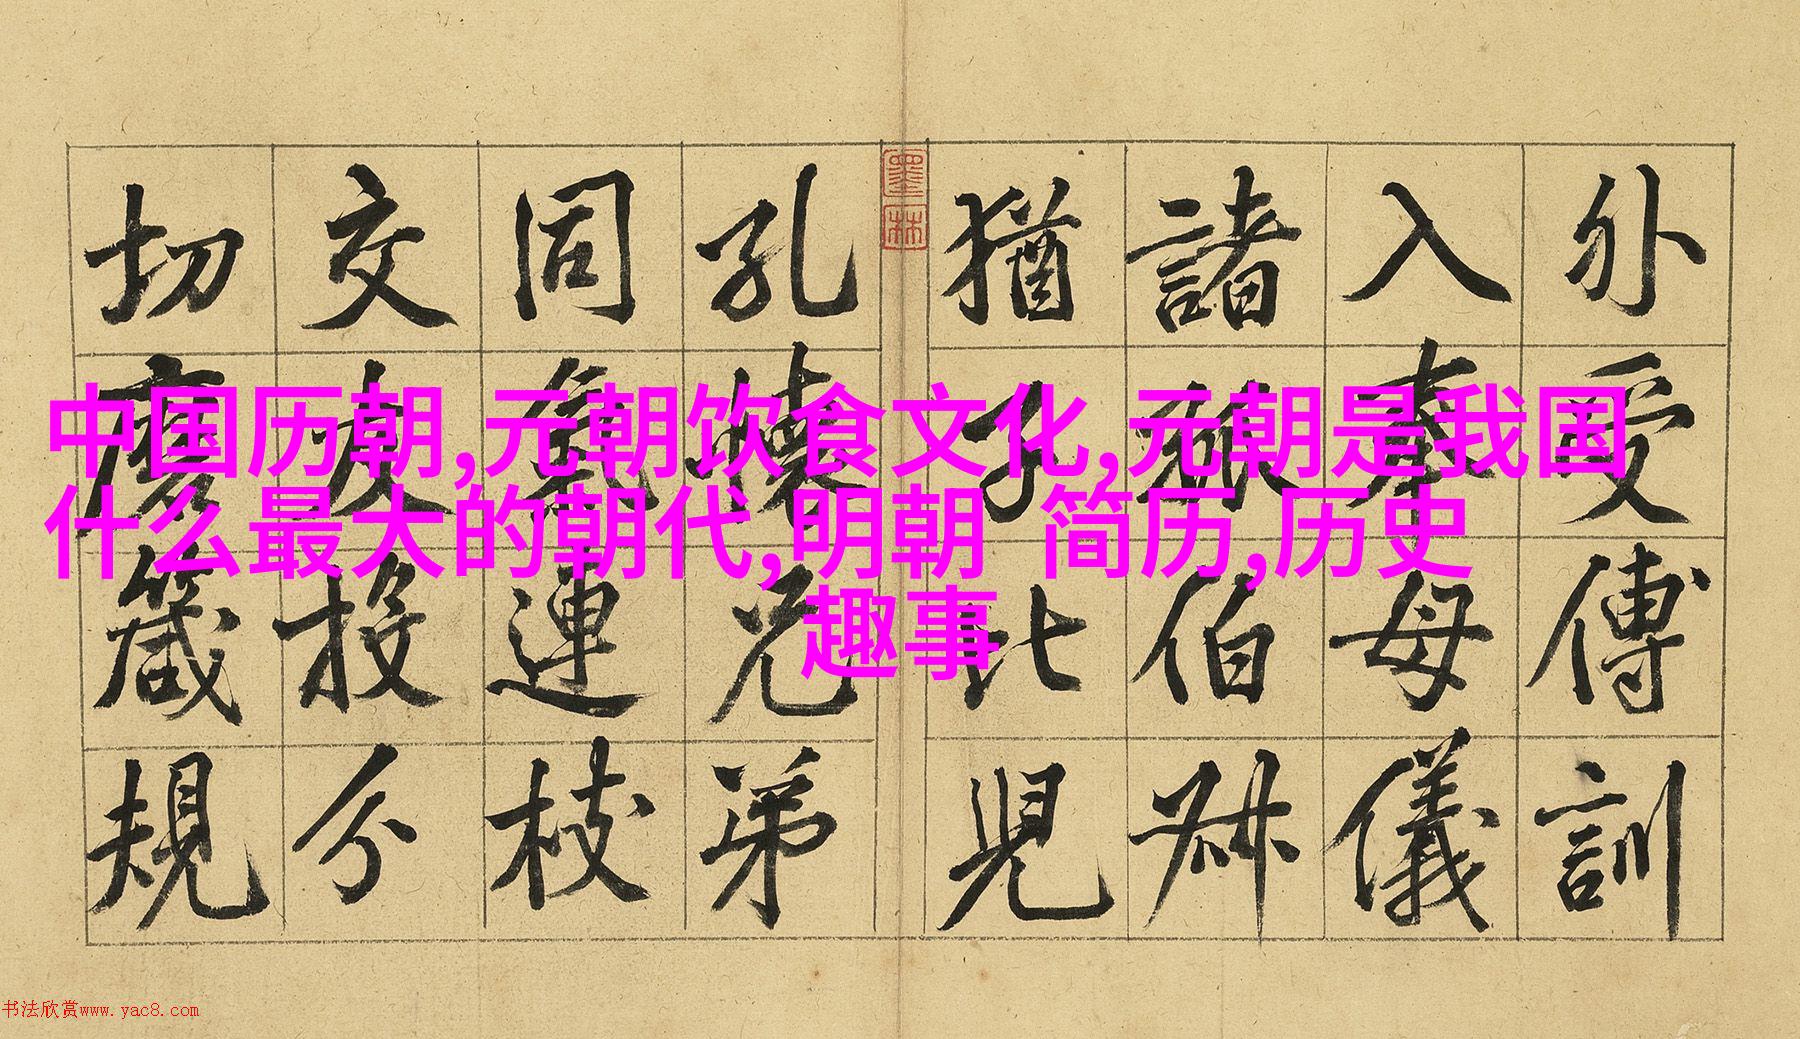 中国历朝,元朝饮食文化,元朝是我国
什么最大的朝代,明朝 简历,历史
趣事
外受傅訓
入奉母儀
諸姑伯叔
猶子比兒
孔懷兄弟
同氣連枝
交友投分
切磨箴規
墨林
书法欣赏www.yac8.com